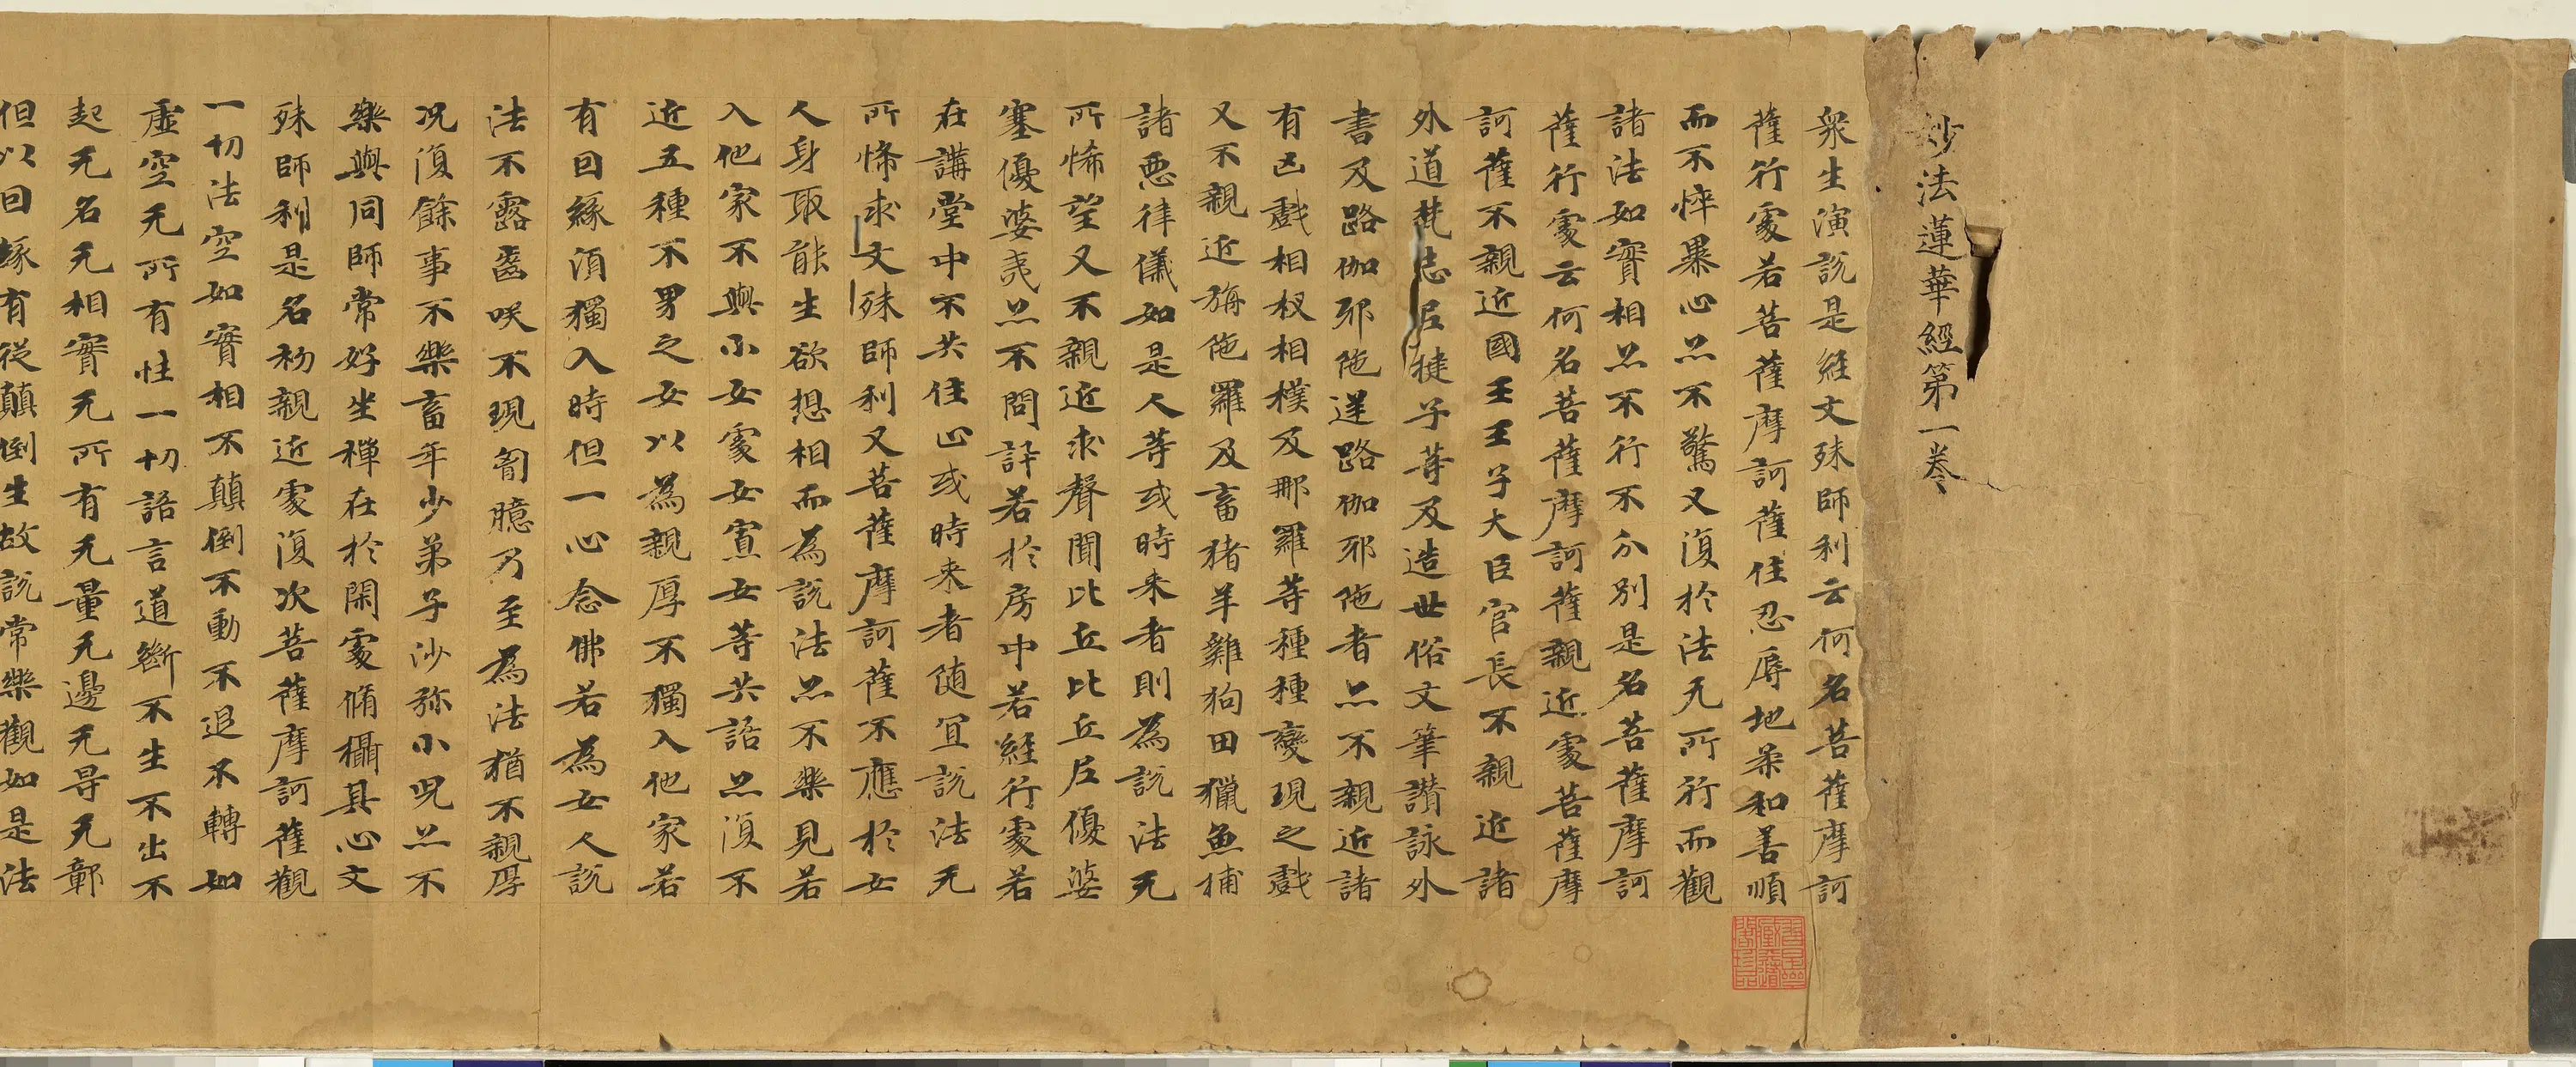 妙法蓮華經第一卷
衆生演說是經文殊師利云何名菩薩摩訶
薩行處若菩薩摩訶薩住忍辱地柔和善順
而不悴暴心亦不驚又復於法无所行而觀
諸法如實相亦不行不分別是名菩薩摩訶
薩行處云何名菩薩摩訶薩親近處菩薩摩
訶薩不親近國王王子大臣官長不親近諸
外道梵志尼揵子等及造世俗文筆讚詠外
書及路伽耶陁逆路伽耶陁者亦不親近諸
有凶戲相杈相撲及那羅等種種變現之戲
又不親近旃陁羅及畜猪羊雞狗田獵魚捕
諸惡律儀如是人等或時来者則為說法无
所悕望又不親近求聲聞比丘比丘尼優婆
塞優婆夷亦不問訊若於房中若經行處若
在講堂中不共住止或時来者随宜說法无
所悕求文殊師利又菩薩摩訶薩不應於女
人身取能生欲想相而為說法亦不樂見若
入他家不與小女處女寡女等共語亦復不
近五種不男之女女以為親厚不獨入他家若
有回緣須獨入時但一心念佛若為女人說
法不露齒咲不現匈臆乃至為法猶不親厚
况復餘事不樂畜年少弟子沙弥小兒亦不
樂與同師常好坐禪在於閑處脩攝其心文
殊師利是名初親近處復次菩薩摩訶薩觀
一切法空如實相不顛倒不動不退不轉如
虛空无所有性一切語言道斷不生不出不
起无名无相實无所有无量无邊无㝵无鄣
但以回緣有從顛倒生故說常樂觀如是法